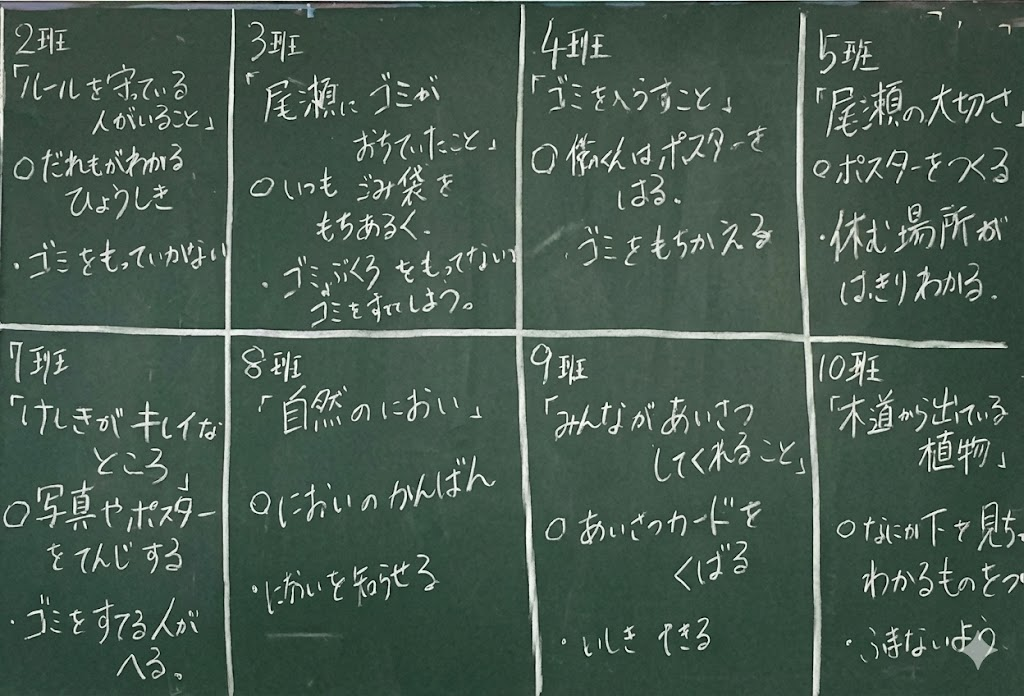 2班
「ルールを守っている
人がいること」
○だれもがわかる
ひょうしき
・ゴミをもっていかない
3班
「尾瀬に ゴミが
おちていたこと」
○いつも ごみ袋を
もちあるく.
・ゴミぶくろをもってない
ゴミをすててしまう。
4班
「ゴミを入うすこと」
○ はポスターを
はる.
ゴミをもちかえる
5班
「尾瀬の大切さ」
○ポスターをつくる
・休む場所が
はっきりわかる.
7班
「けしきがキレイな
ところ」
○写真やポスター
をてんじする
・ゴミをすてる人が
へる。
8班
「自然のにおい」
○においのかんばん
・においを知らせる
9班
「みんながあいさつ
してくれること」
○あいさつカードを
くばる
・いしきできる
10班
「木道から出ている
植物」
○なにか下を見ち
わかるものをつ
・ふまないよう